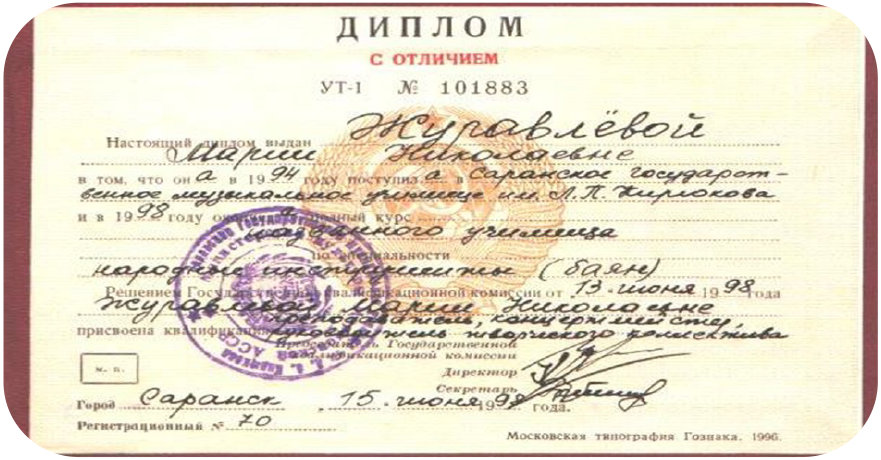 ДИПЛОМ
С ОТЛИЧИЕМ
УТ-I № 101883
Настоящий диплом выдан Журавлёвой
Марии Николаевне
в том, что она в 1994 году поступила в Саранское государст-
венное музыкальное училище им. Л.П. Кирюкова
и в 1998 году полный курс
названного училища
по специальности
народные инструменты (баян)
Решением Государственной квалификационной комиссии от 13 июня 1998 года
Журавлёвой Марии Николаевне
присвоена квалификация преподаватель, концертмейстер,
руководитель творческого коллектива
Председатель Государственной
квалификационной комиссии
Директор
М. П.
Секретарь
Город Саранск, 15 июня 1998 года.
Регистрационный № 70
Московская типография Гознака. 1996.